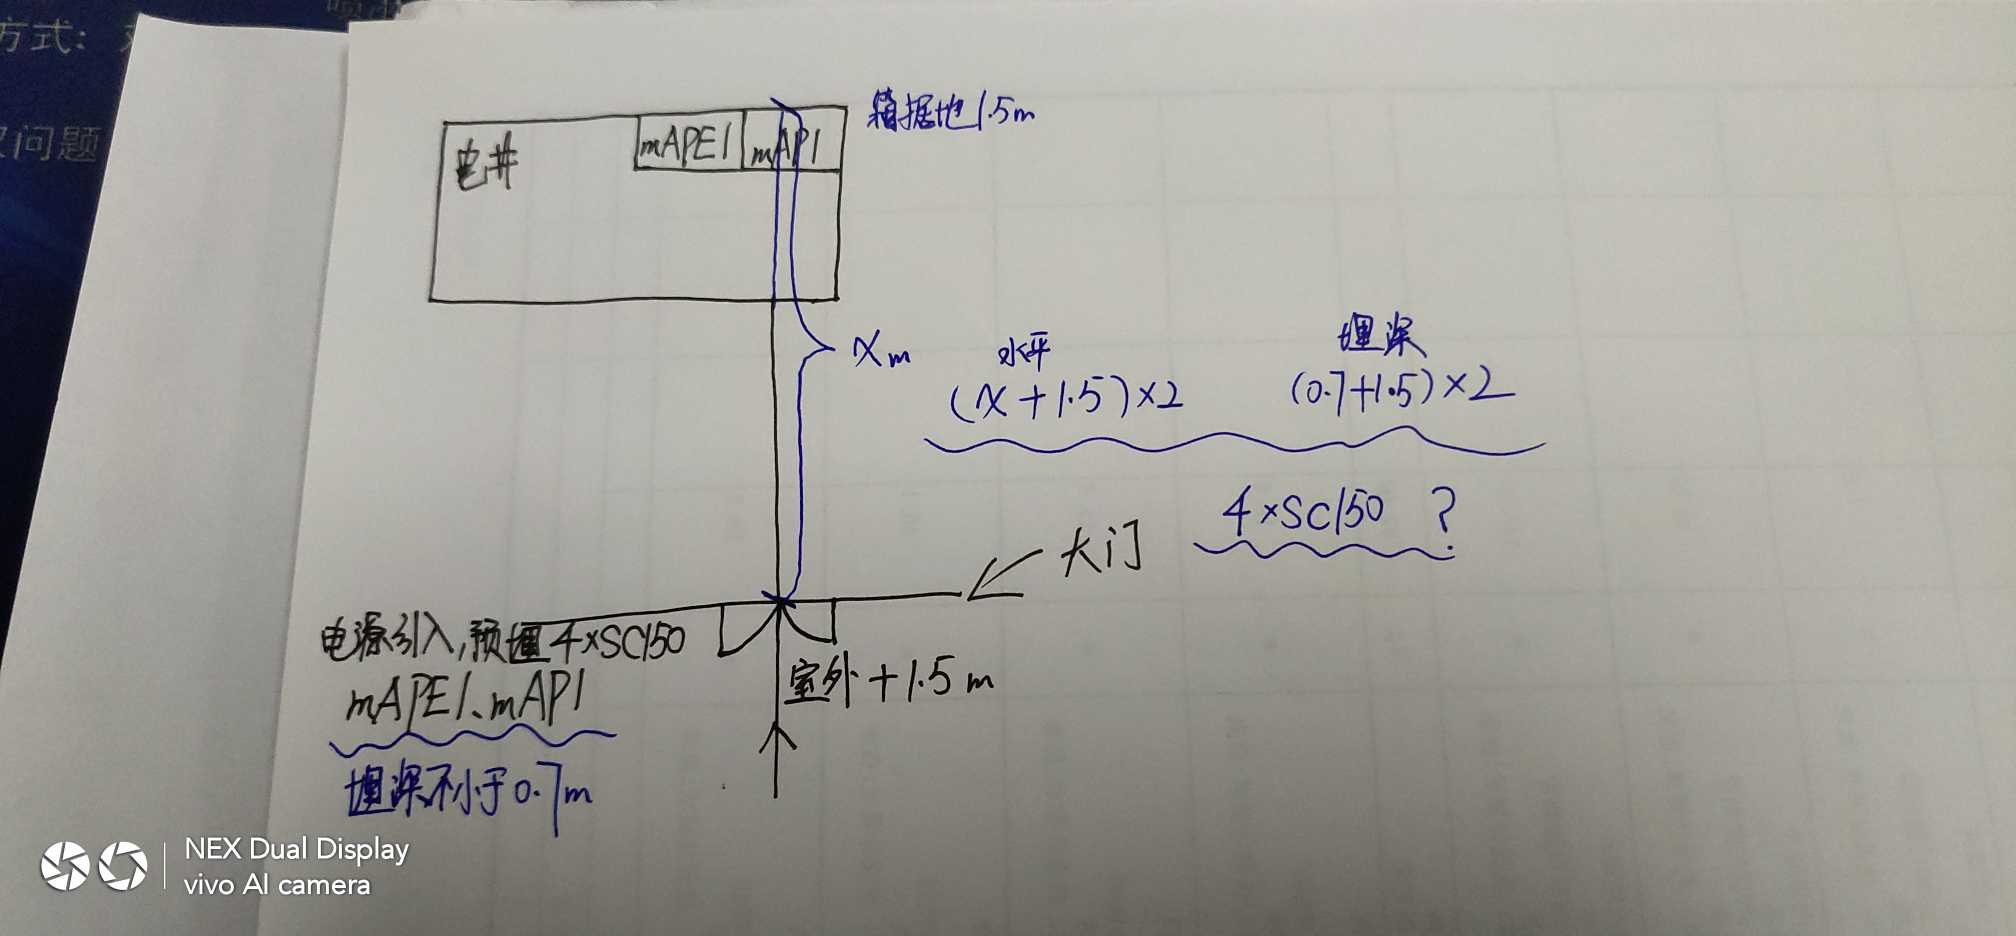 方式:
问题
电井
mAPE1
mAP1
箱据地1.5m
Xm
水平
(X+1.5)×2
埋深
(0.7+1.5)×2
4×SC150 ?
大门
电源引入,预埋4×SC150
mAPE1、mAP1
室外+1.5m
埋深不小于0.7m
NEX Dual Display
vivo AI camera